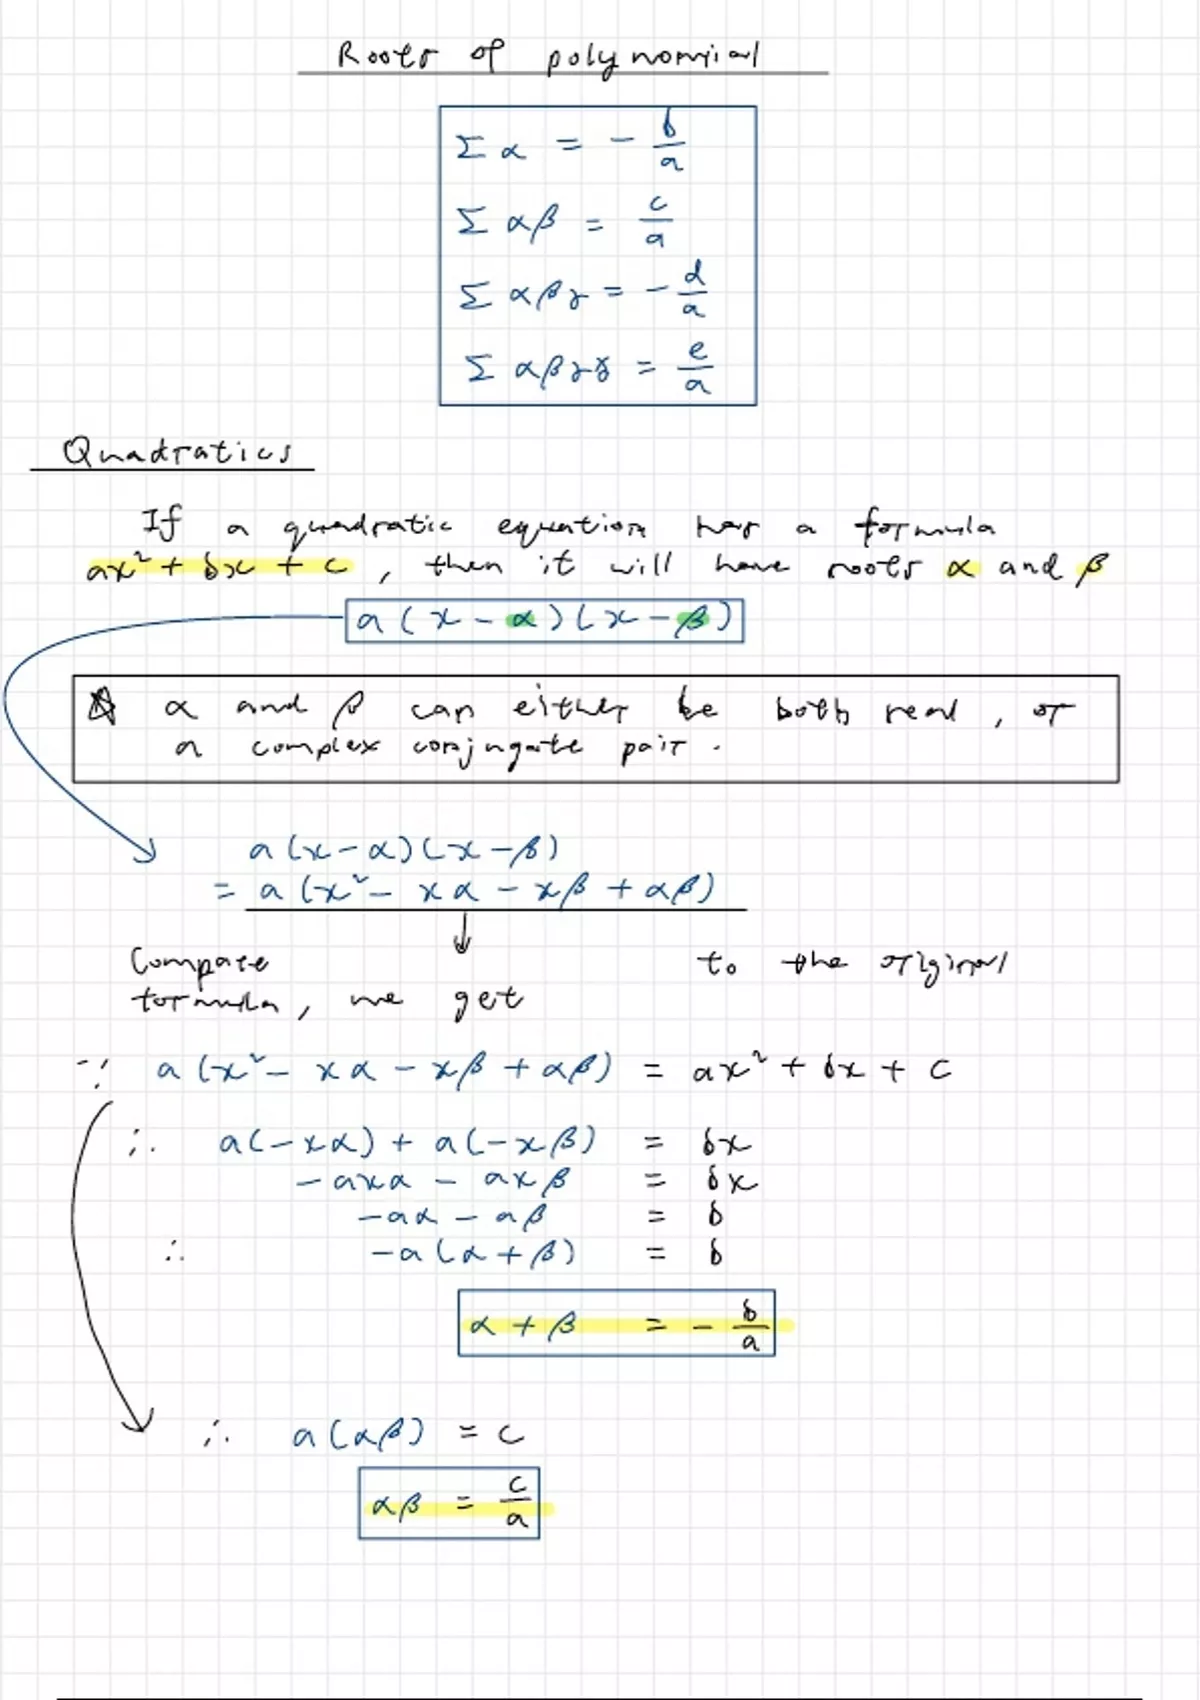 Roots of polynomial
Σ α = - b/a
Σ αβ = c/a
Σ αβγ = - d/a
Σ αβγδ = e/a
Quadratics
If a quadratic equation has a formula
ax² + bx + c , then it will have roots α and β
a(x - α)(x - β)
☆ α and β can either be both real , or
a complex conjugate pair .
a(x - α)(x - β)
= a(x² - xα - xβ + αβ)
↓
Compare to the original
formula, we get
∵ a(x² - xα - xβ + αβ) = ax² + bx + c
∴ a(-xα) + a(-xβ) = bx
-axα - axβ = bx
-aα - aβ = b
∴ -a(α + β) = b
α + β = - b/a
∴ a(αβ) = c
αβ = c/a